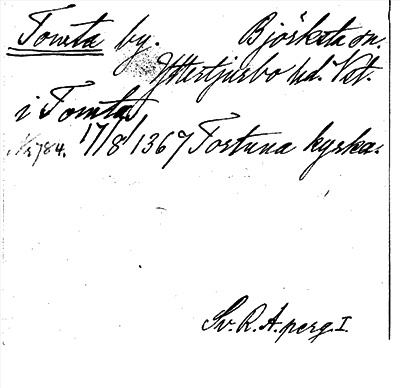 Tomta by. Björksta sn.
Yttertjurbo hd. Vstm.
i Tomta
No 784. 17/8 1367 Tortuna kyrka.
Sv. R. A. perg. I.